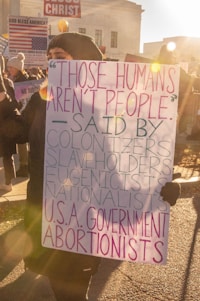 CHRIST
"THOSE HUMANS
AREN'T PEOPLE."
— SAID BY
COLONIZERS
SLAVEHOLDERS
EUGENICISTS
NATIONALISTS
U.S.A. GOVERNMENT
ABORTIONISTS